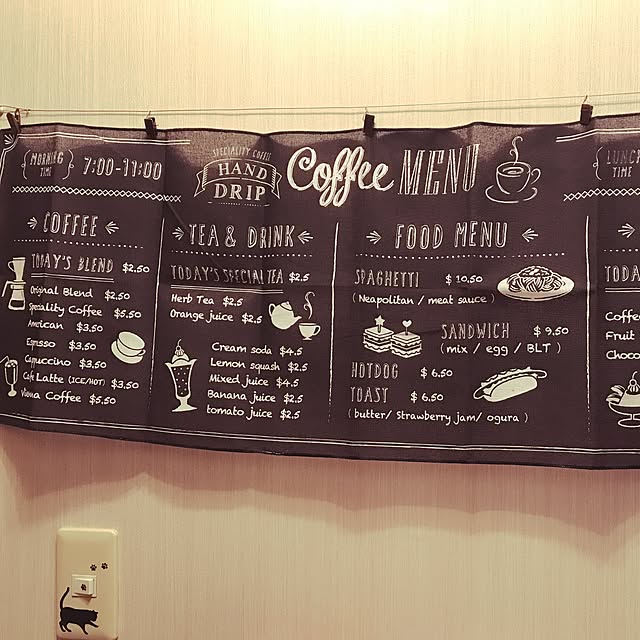 MORNING
TIME
7:00-11:00
SPECIALITY COFFEE
HAND
DRIP
Coffee MENU
LUNCH
TIME
COFFEE
TODAY'S BLEND $2.50
Original Blend $2.50
Speciality Coffee $5.50
American $3.50
Espresso $3.50
Cappuccino $3.50
Cafe Latte (ICE/HOT) $3.50
Vienna Coffee $5.50
TEA & DRINK
TODAY'S SPECIAL TEA $2.5
Herb Tea $2.5
Orange juice $2.5
Cream soda $4.5
Lemon squash $2.5
Mixed juice $4.5
Banana juice $2.5
tomato juice $2.5
FOOD MENU
SPAGHETTI $10.50
(Neapolitan / meat sauce)
SANDWICH $9.50
(mix / egg / BLT)
HOTDOG $6.50
TOAST $6.50
(butter/ Strawberry jam/ ogura)
TODA
Coffe
Fruit
Choco